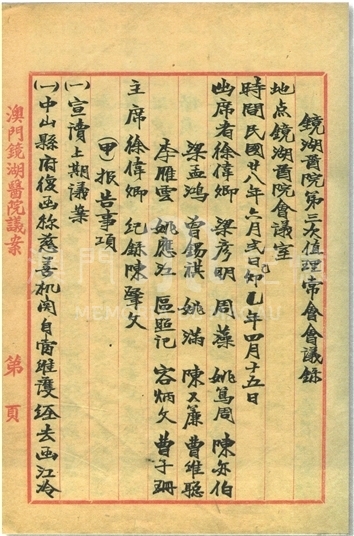 鏡湖醫院第三次值理常會會議錄
地点鏡湖醫院會議室
時間民國廿八年六月弍日即己卯年四月十五日
出席者徐偉卿 梁彥明 周藻 姚篤周 陳亦伯
梁孟鴻 曾錫祺 姚滿 陳又廉 曹維聰
李雁雲 姚應江 區照記 容炳文 曹子珊
主席徐偉卿 紀錄陳肇文
(甲)报告事項
(一)宣讀上期議案
(一)中山縣府復函畧慈善机関自當維護经去函江冷
澳門鏡湖醫院議案 第 頁
澳門
MEMO